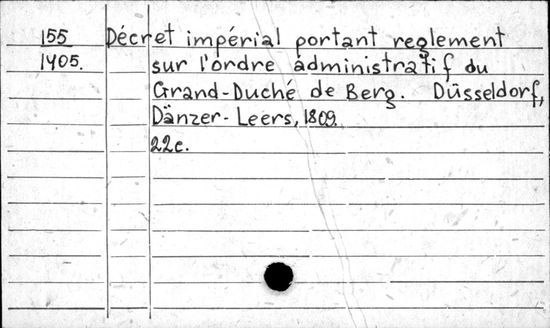 155 Décret impérial portant reglement
1405. sur l'ordre administratif du
Grand-Duché de Berg. Düsseldorf,
Dänzer-Leers, 1809.
22c.